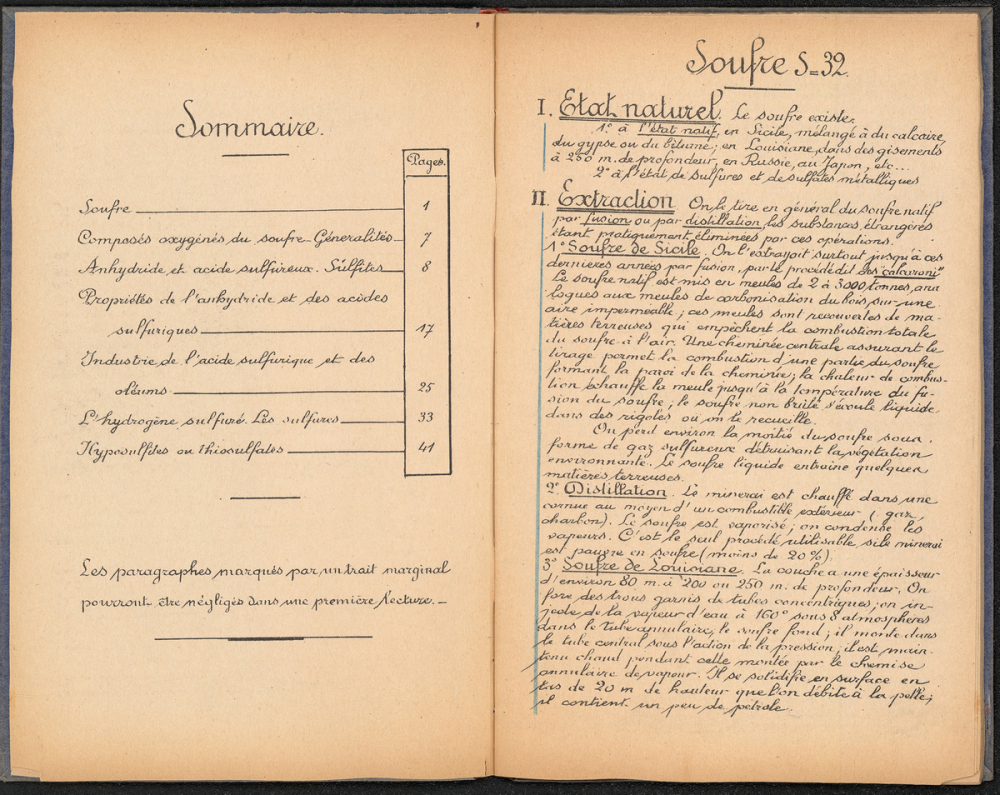 Sommaire.
Pages.
Soufre 1
Composés oxygénés du soufre - Généralités 7
Anhydride et acide sulfureux. Sulfites 8
Propriétés de l'anhydride et des acides
sulfuriques 17
Industrie de l'acide sulfurique et des
oléums 25
L'hydrogène sulfuré. Les sulfures 33
Hyposulfites ou thiosulfates 41
Les paragraphes marqués par un trait marginal
pourront être négligés dans une première lecture.
Soufre S=32.
I. Etat naturel. Le soufre existe.
1° à l'état natif, en Sicile, mélangé à du calcaire,
du gypse ou du bitume; en Louisiane, dans des gisements
à 250 m. de profondeur, en Russie, au Japon, etc...
2° à l'état de sulfures et de sulfates métalliques
II. Extraction On le tire en général du soufre natif
par fusion ou par distillation, les substances étrangères
étant pratiquement éliminées par ces opérations.
1° Soufre de Sicile. On l'extrayait surtout jusqu'à ces
dernières années par fusion, par le procédé dit des "calcaroni"
Le soufre natif est mis en meules de 2 à 3000 tonnes, ana
logues aux meules de carbonisation du bois, sur une
aire imperméable; ces meules sont recouvertes de ma-
tières terreuses qui empêchent la combustion totale
du soufre à l'air. Une cheminée centrale assurant le
tirage permet la combustion d'une partie du soufre
formant la paroi de la cheminée; la chaleur de combus-
tion échauffe la meule jusqu'à la température du fu-
sion du soufre; le soufre non brûlé s'écoule liquide
dans des rigoles où on le recueille.
On perd environ la moitié du soufre sous
forme de gaz sulfureux détruisant la végétation
environnante. Le soufre liquide entraîne quelques
matières terreuses.
2° Distillation. Le minerai est chauffé dans une
cornue au moyen d'un combustible extérieur (gaz,
charbon). Le soufre est vaporisé; on condense les
vapeurs. C'est le seul procédé utilisable si le minerai
est pauvre en soufre (moins de 20%).
3° Soufre de Louisiane. La couche a une épaisseur
d'environ 80 m. à 200 ou 250 m. de profondeur. On
fore des trous garnis de tubes concentriques; on in-
jecte de la vapeur d'eau à 160° sous 8 atmosphères
dans le tube annulaire, le soufre fond; il monte dans
le tube central sous l'action de la pression; il est main-
tenu chaud pendant cette montée par le chemise
annulaire de vapeur. Il se solidifie en surface en
tas de 20 m de hauteur que l'on débite à la pelle;
il contient un peu de pétrole.